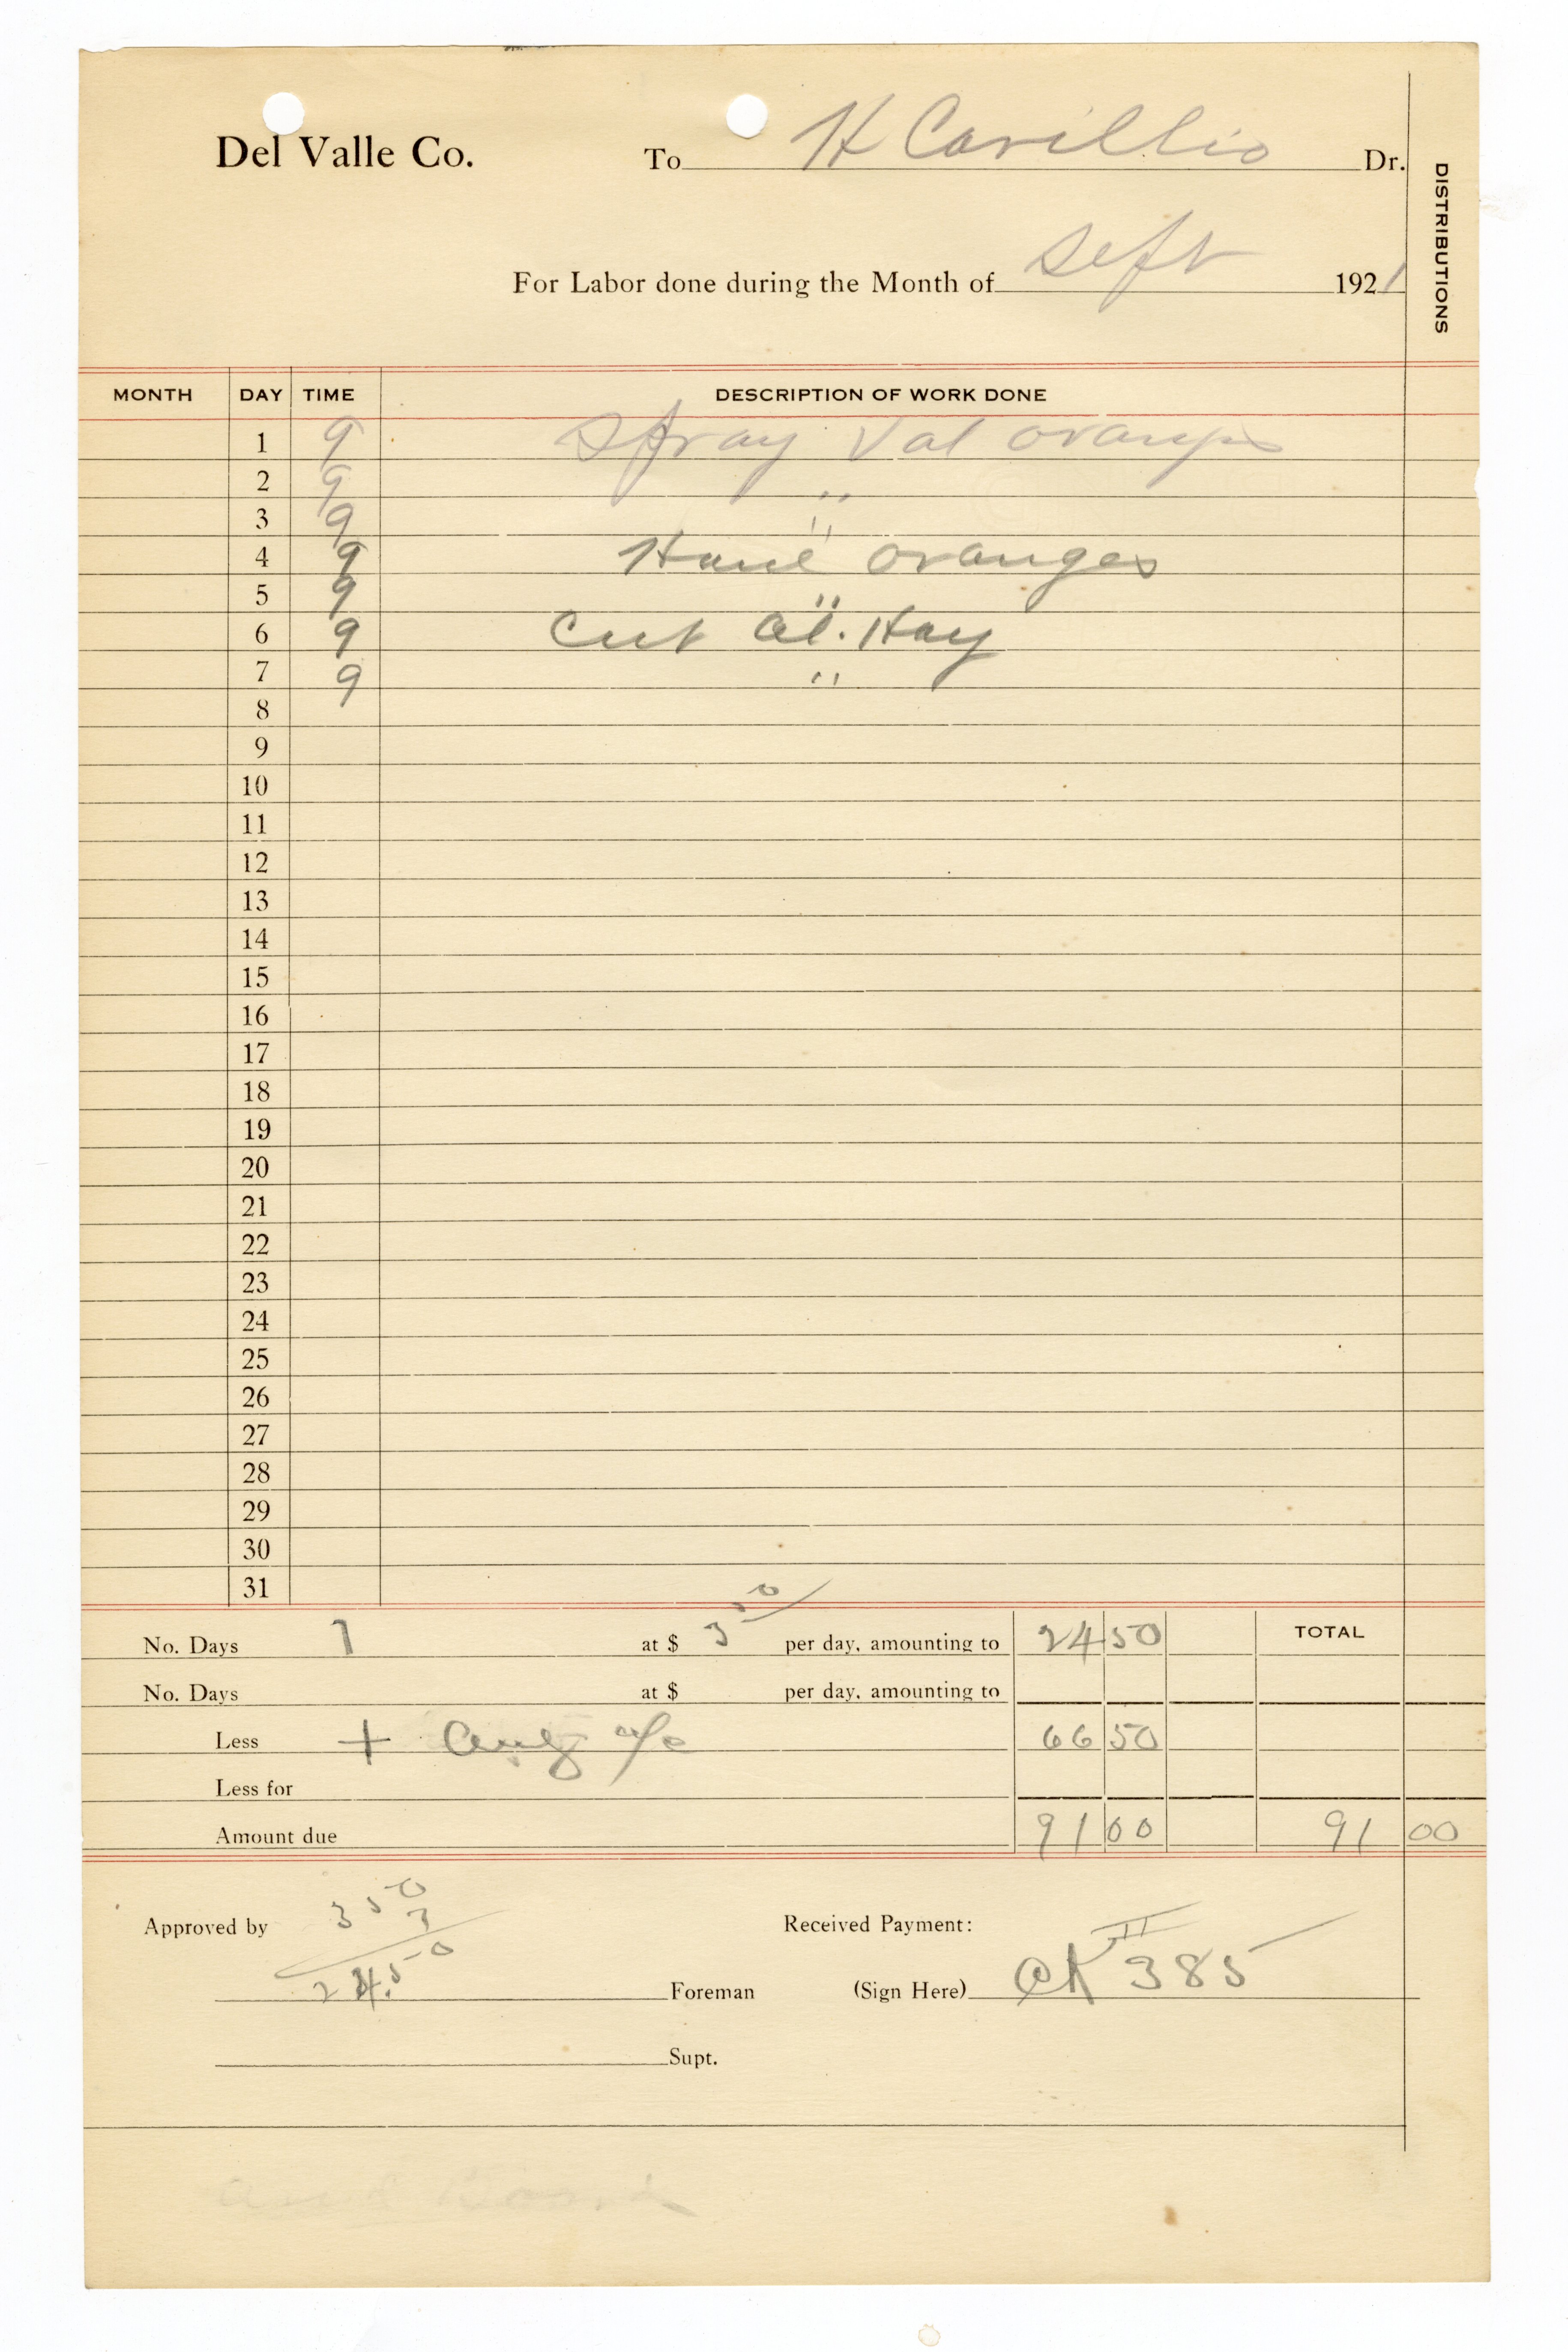 Del Valle Co. To H Carillio Dr.
DISTRIBUTIONS
For Labor done during the Month of Sept 1921
MONTH DAY TIME DESCRIPTION OF WORK DONE
1 9 Spray Val oranges
2 9 "
3 9 "
4 9 Haul oranges
5 9 "
6 9 Cut Al. Hay
7 9 "
8
9
10
11
12
13
14
15
16
17
18
19
20
21
22
23
24
25
26
27
28
29
30
31
No. Days 7 at $ 3 50 per day, amounting to 24 50 TOTAL
No. Days at $ per day, amounting to
Less + Aug a/c 66 50
Less for
Amount due 91 00 91 00
3 50
Approved by 7 Received Payment:
24.50 Foreman (Sign Here) CK II 385
Supt.
and Board